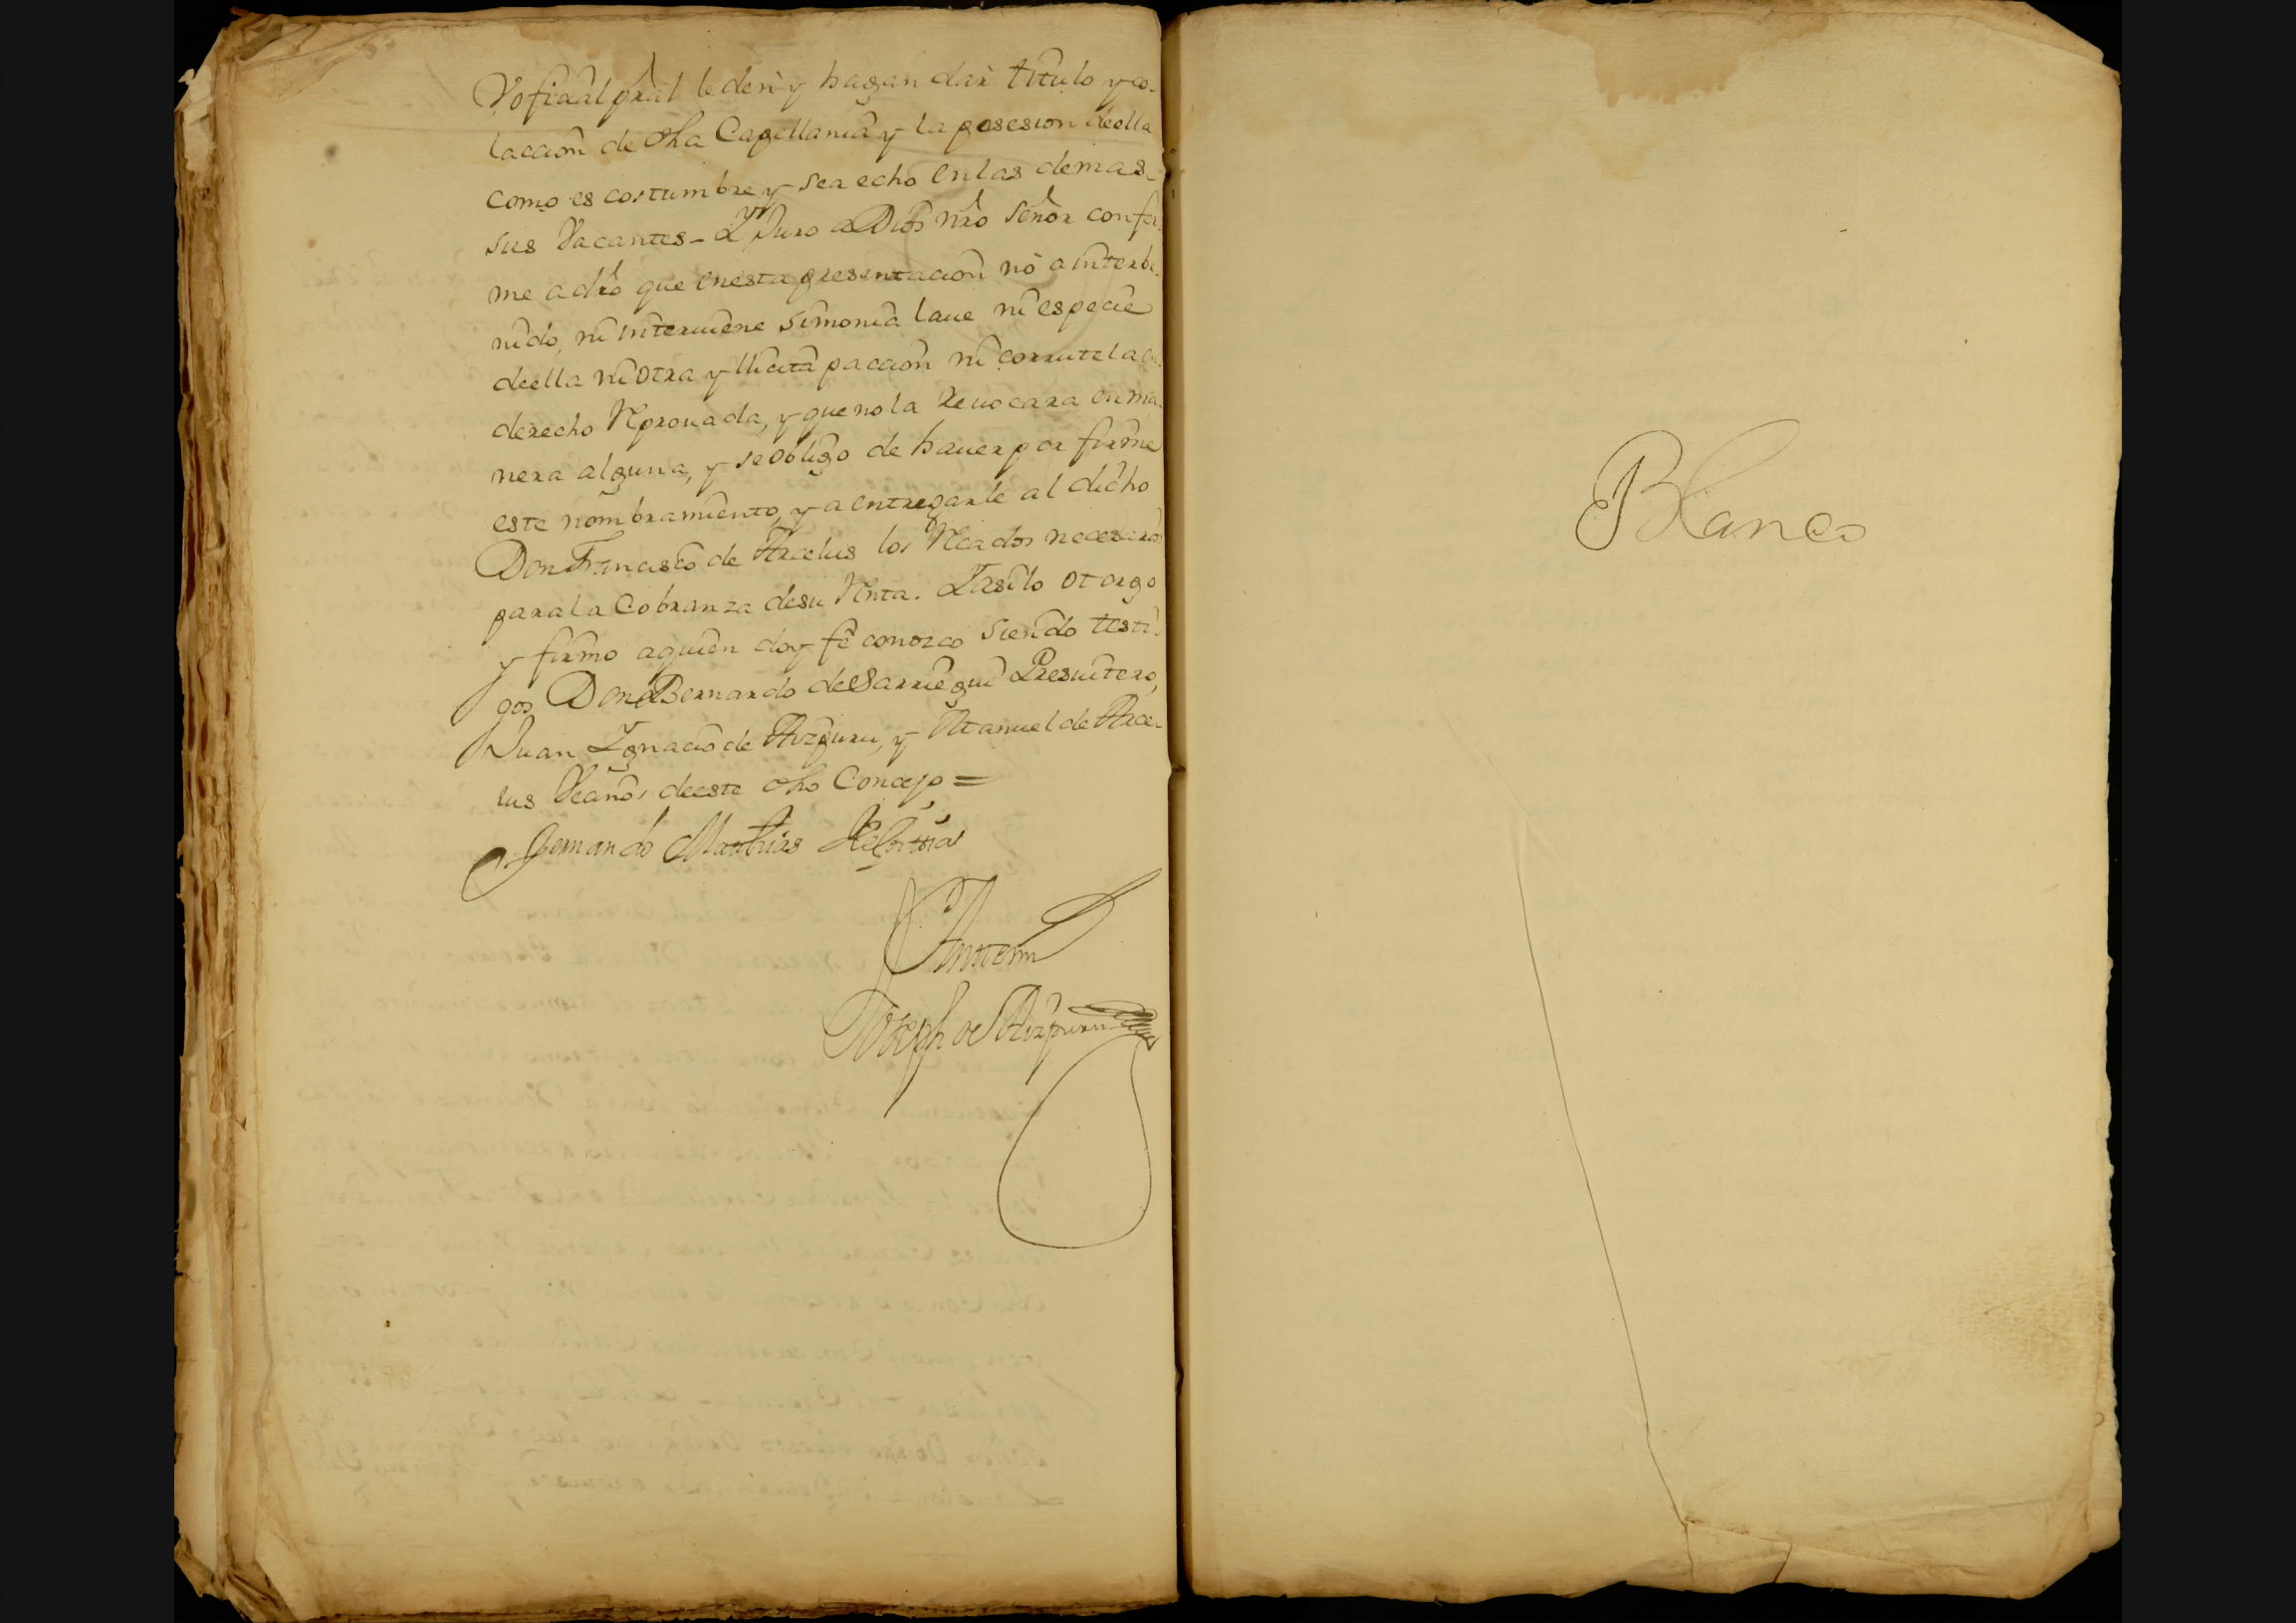 Vofiçial prâl le den y hagan dar titulo y co-
lacion de dha Capellania y la posesion deella
como es costumbre y sea echo en las demas
sus Vacantes - Y Juro a Dios nrô señor confor-
me a drô que en esta presentacion nò a interbe-
nido, ni interuiene simonia laue ni especie
deella ni otra yllicita paccion ni corrutela en
derecho Reprouada, y que no la Reuocara en ma-
nera alguna, y se obligo de hauer por firme
este nombramiento, y a entregarle al dicho
Don Francisco de Arcelus los Recados necesarios
para la Cobranza desu Renta. Y asi lo otorgo
y firmo aquien doy feê conozco siendo testi-
gos Don Bernardo de Sarriegui Presuitero,
Juan Ygnacio de Aizpuru, y Manuel de Arce-
lus Vecinos deeste dho Concejo =
Fernando Mathias
Antemi
Joseph de Aizpuru
Blanco